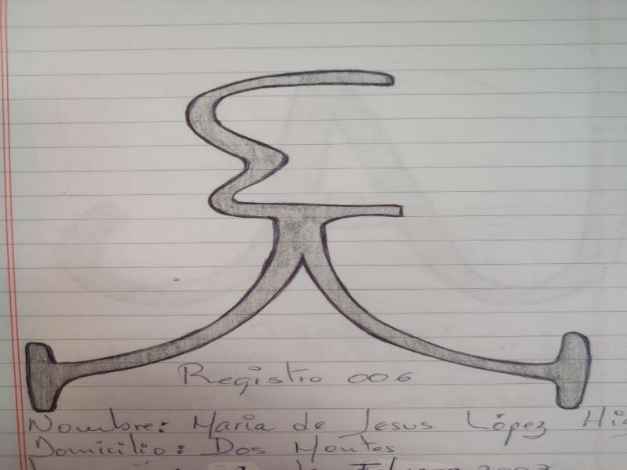 Registro 006
Nombre: Maria de Jesus López
Domicilio: Dos Montes